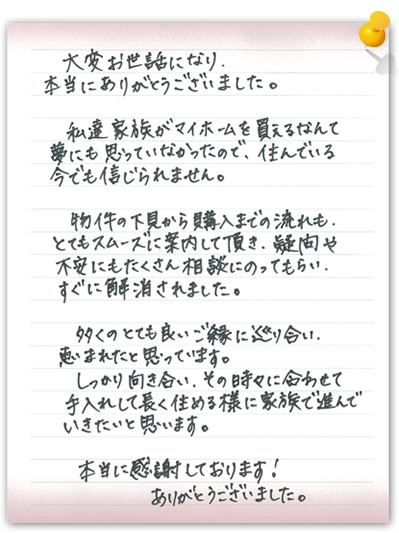 大変お世話になり、
本当にありがとうございました。
私達家族がマイホームを買えるなんて
夢にも思っていなかったので、住んでいる
今でも信じられません。
物件の下見から購入までの流れも、
とてもスムーズに案内して頂き、疑問や
不安にもたくさん相談にのってもらい、
すぐに解消されました。
多くのとても良いご縁に巡り合い、
恵まれたと思っています。
しっかり向き合い、その時々に合わせて
手入れして長く住める様に家族で進んで
いきたいと思います。
本当に感謝しております!
ありがとうございました。